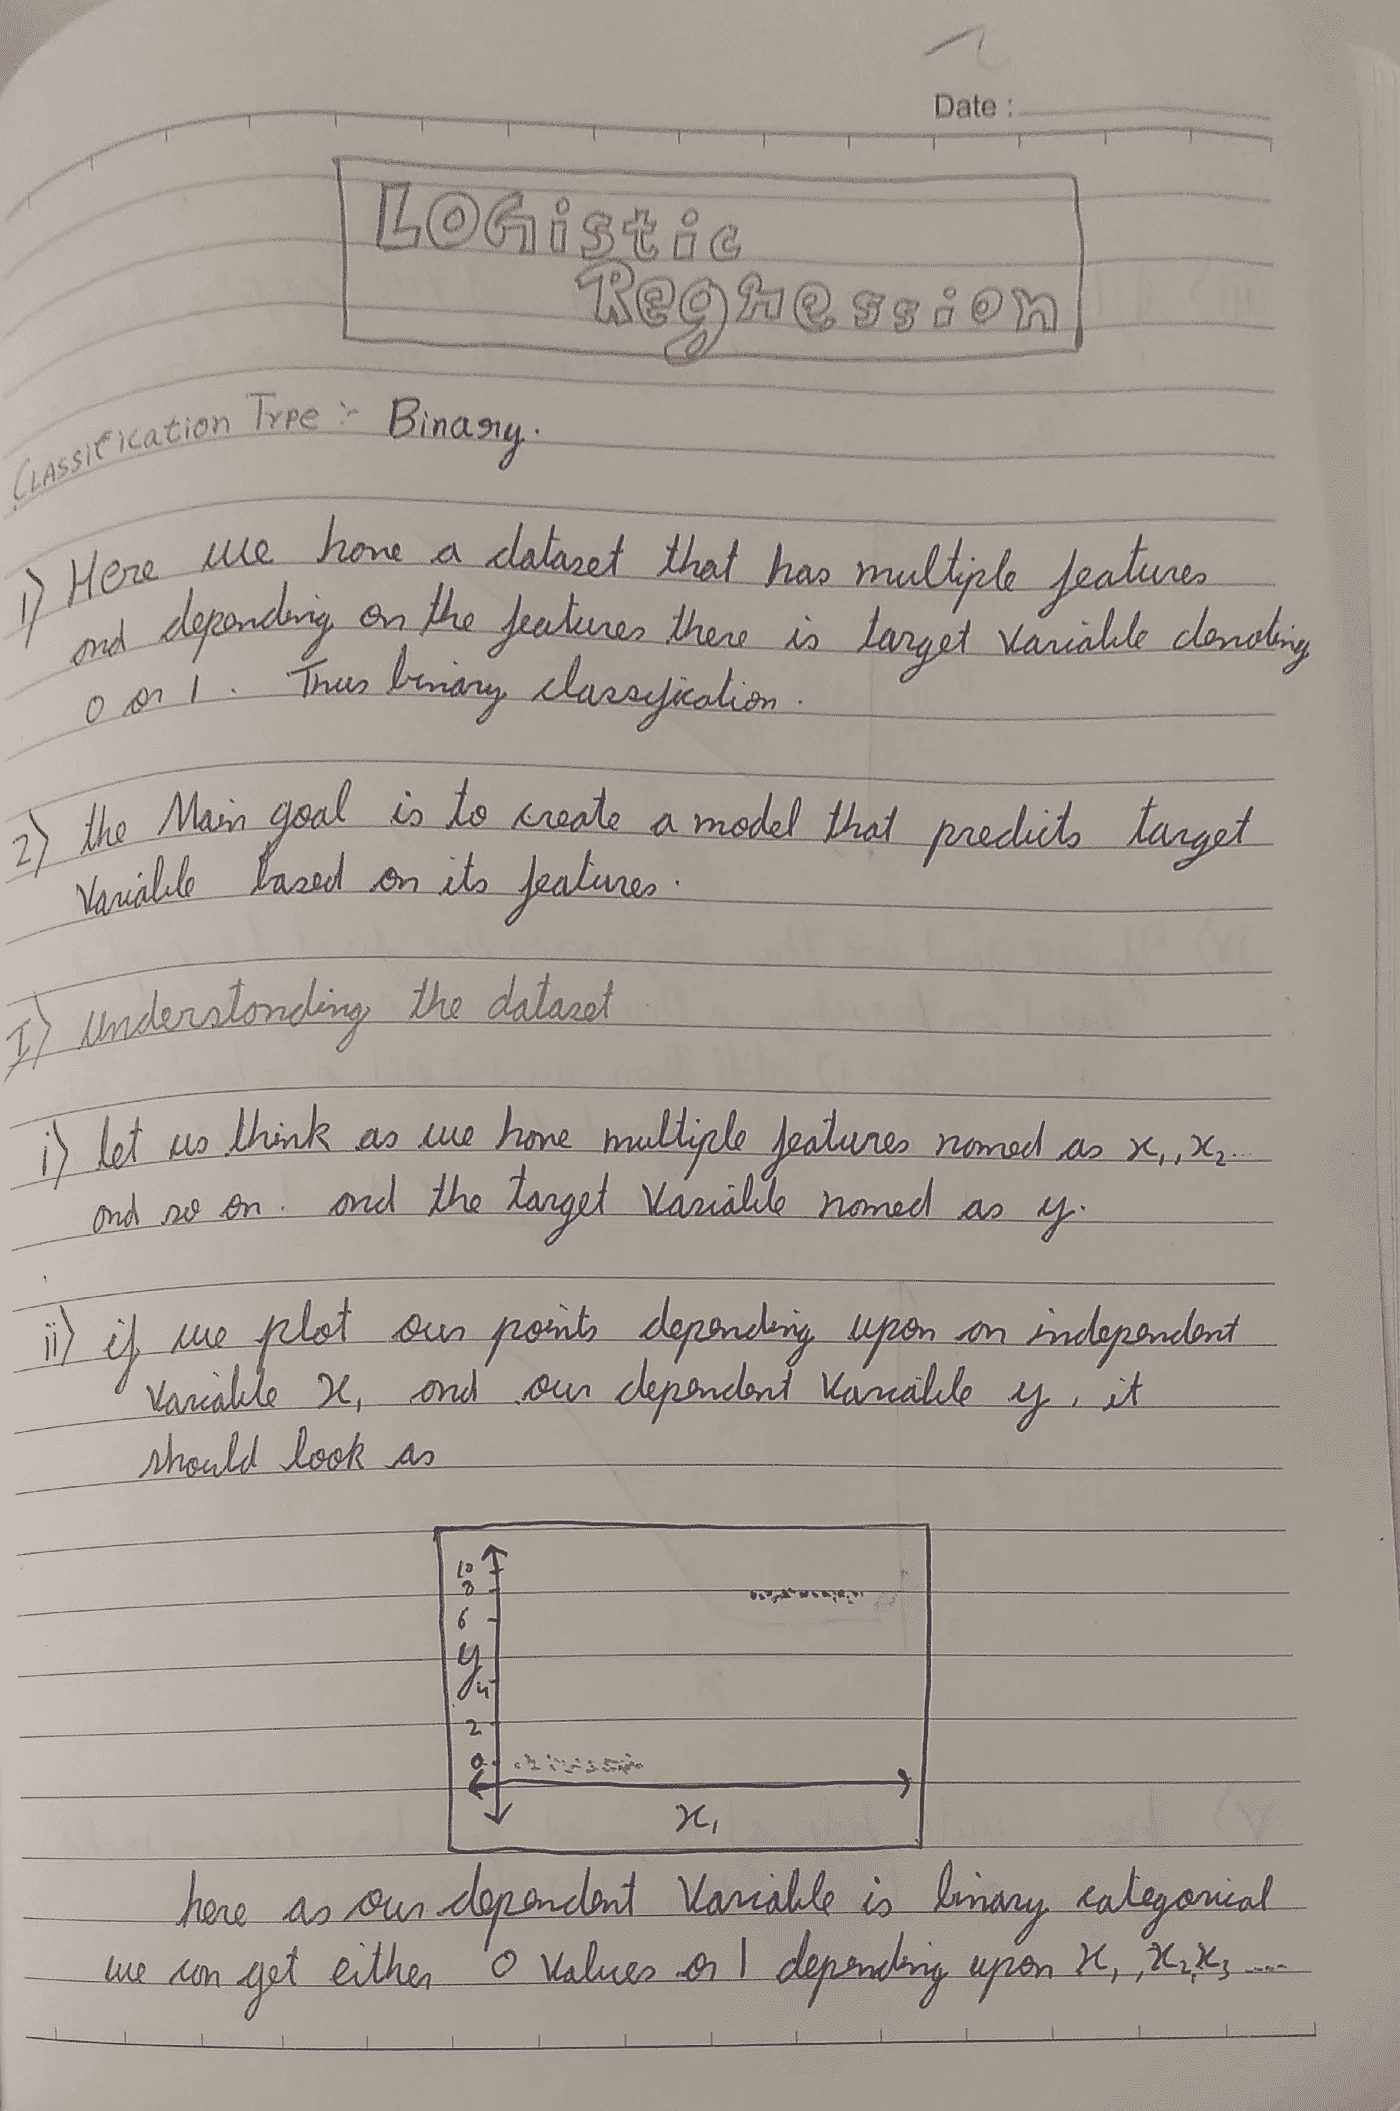 Date :
LOGistic
Regression
Classification Type :- Binary.
1) Here we have a dataset that has multiple features
and depending on the features there is target variable denoting
0 or 1. Thus binary classification.
2) the Main goal is to create a model that predicts target
variable based on its features.
I) Understanding the dataset
i) let us think as we have multiple features named as x₁, x₂...
and so on. and the target variable named as y.
ii) if we plot our points depending upon an independent
variable x₁ and our dependent variable y, it
should look as
10
8
6
y
4
2
0
x₁
here as our dependent variable is binary categorical
we can get either 0 values or 1 depending upon x₁, x₂, x₃ ....